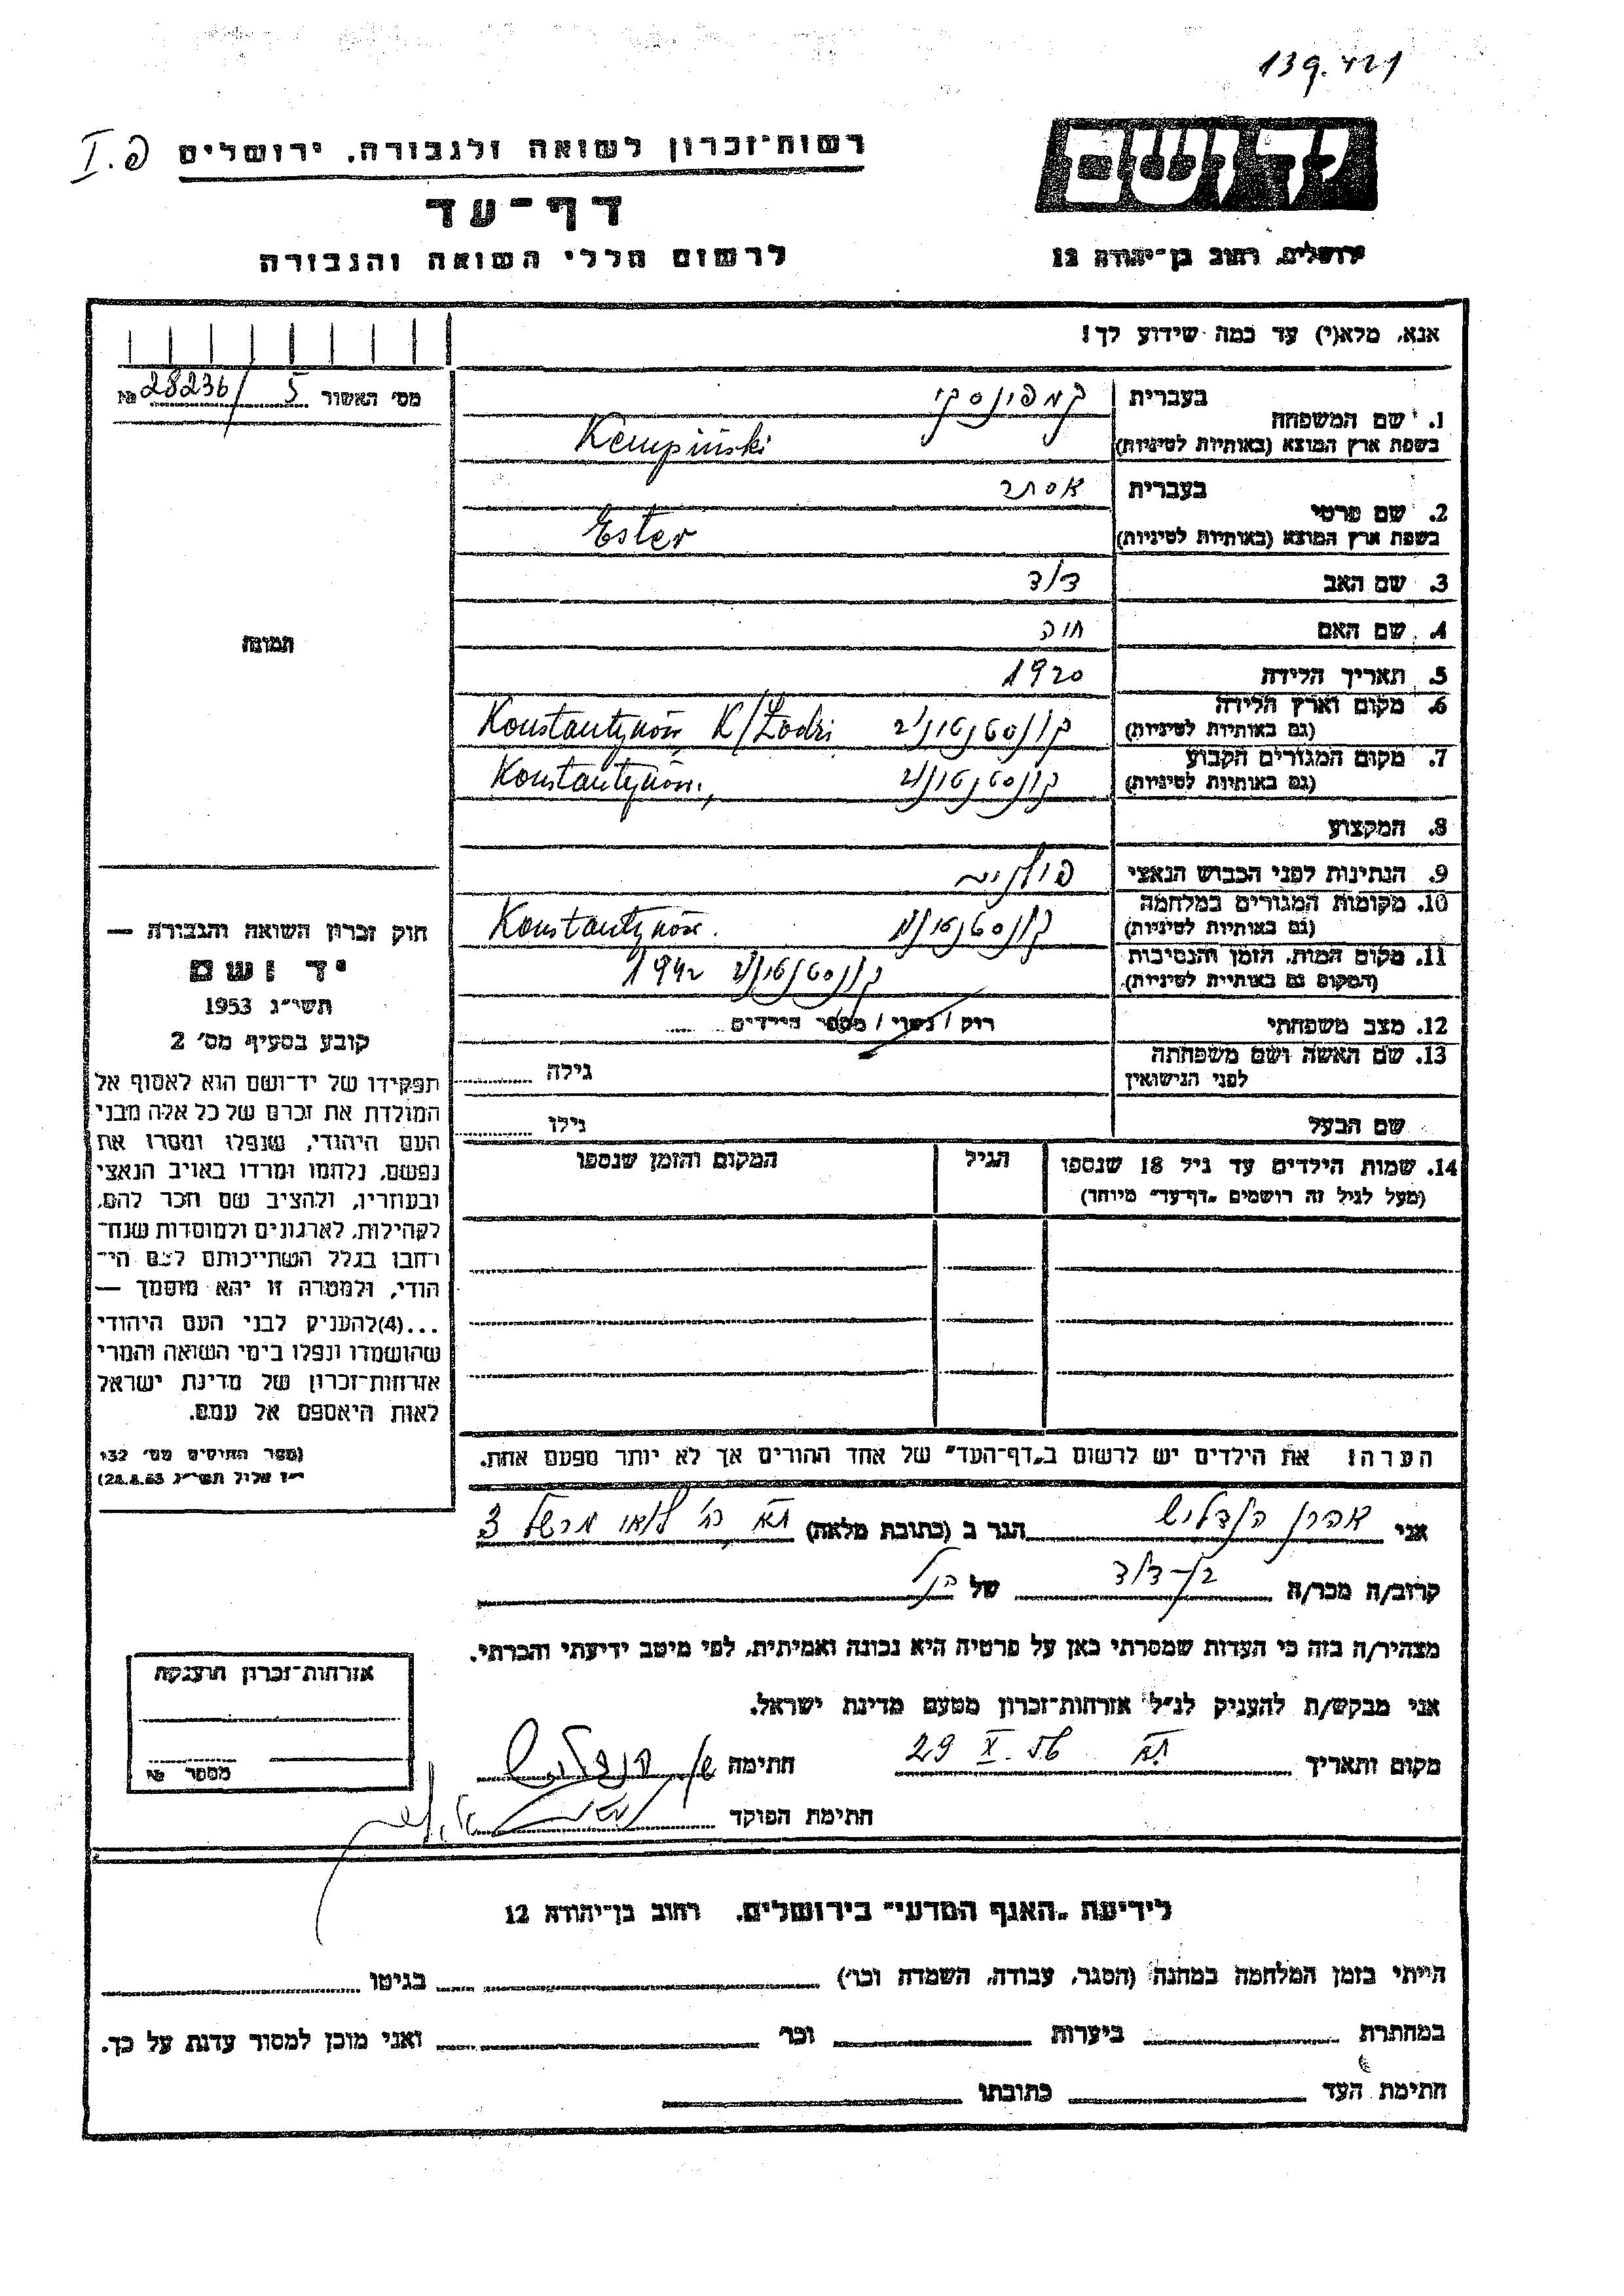 139.421
רשות־זכרון לשואה ולגבורה, ירושלים
דף־עד
לרשום חללי השואה והגבורה
יד ושם
ירושלים, רחוב בן־יהודה 12
אנא, מלא(י) עד כמה שידוע לך!
מס׳ האשור 5 / 28236 №
בעברית קמפינסקי
1. שם המשפחה
בשפת ארץ המוצא (באותיות לטיניות) Kempiński
בעברית אסתר
2. שם פרטי
בשפת ארץ המוצא (באותיות לטיניות) Ester
3. שם האב דוד
4. שם האם חוה
5. תאריך הלידה 1920
6. מקום וארץ הלידה
(גם באותיות לטיניות) קונסטנטינוב Konstantynów K/Łodzi
7. מקום המגורים הקבוע
(גם באותיות לטיניות) קונסטנטינוב Konstantynów,
8. המקצוע
9. הנתינות לפני הכבוש הנאצי פולנית
10. מקומות המגורים במלחמה
(גם באותיות לטיניות) קונסטנטינוב Konstantynów.
11. מקום המות, הזמן והנסיבות
(המקום גם באותיות לטיניות) קונסטנטינוב 1942
12. מצב משפחתי רוק / נשוי / מספר הילדים
13. שם האשה ושם משפחתה
לפני הנישואין גילה
שם הבעל גילו
14. שמות הילדים עד גיל 18 שנספו הגיל המקום והזמן שנספו
(מעל לגיל זה רושמים „דף־עד״ מיוחד)
הערה: את הילדים יש לרשום ב„דף־העד״ של אחד ההורים אך לא יותר מפעם אחת.
תמונה
חוק זכרון השואה והגבורה —
יד ושם
תשי״ג 1953
קובע בסעיף מס׳ 2
תפקידו של יד־ושם הוא לאסוף אל
המולדת את זכרם של כל אלה מבני
העם היהודי, שנפלו ומסרו את
נפשם, נלחמו ומרדו באויב הנאצי
ובעוזריו, ולהציב שם וזכר להם,
לקהילות, לארגונים ולמוסדות שנח־
רחבו בגלל השתייכותם לעם הי־
הודי, ולמטרה זו יהא מוסמך —
...(4)להעניק לבני העם היהודי
שהושמדו ונפלו בימי השואה והמרי
אזרחות־זכרון של מדינת ישראל
לאות היאספם אל עמם.
(ספר החוקים מס׳ 132
י״ז אלול תשי״ג 28.8.53)
אני אהרן הנדליש הגר ב (כתובת מלאה) תא
קרוב/ה מכר/ה בן-דוד של הנ״ל
מצהיר/ה בזה כי העדות שמסרתי כאן על פרטיה היא נכונה ואמיתית, לפי מיטב ידיעתי והכרתי.
אני מבקש/ת להעניק לנ״ל אזרחות־זכרון מטעם מדינת ישראל.
מקום ותאריך תא 29 X. 56 חתימה
חתימת הפוקד
אזרחות־זכרון הוענקה
מספר №
לידיעת „האגף המדעי״ בירושלים, רחוב בן־יהודה 12
הייתי בזמן המלחמה במחנה (הסגר, עבודה, השמדה וכו׳) בגיטו
במחתרת ביערות וכו׳ ואני מוכן למסור עדות על כך.
חתימת העד כתובתו